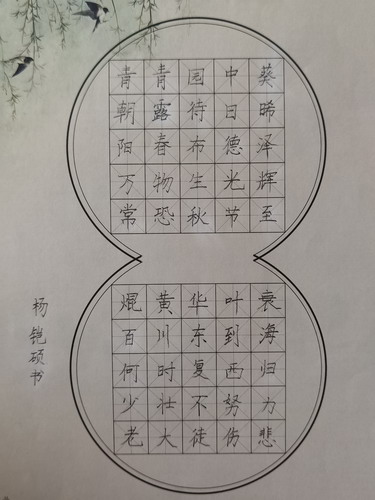 青青园中葵
朝露待日晞
阳春布德泽
万物生光辉
常恐秋节至
焜黄华叶衰
百川东到海
何时复西归
少壮不努力
老大徒伤悲
杨铠硕书